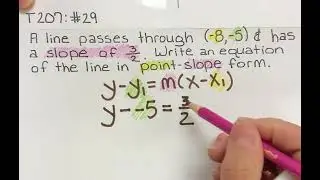 T207: #29
A line passes through (-8,-5) & has
a slope of 3/2. Write an equation
of the line in point-slope form.
y-y₁=m(x-x₁)
y--5=3/2